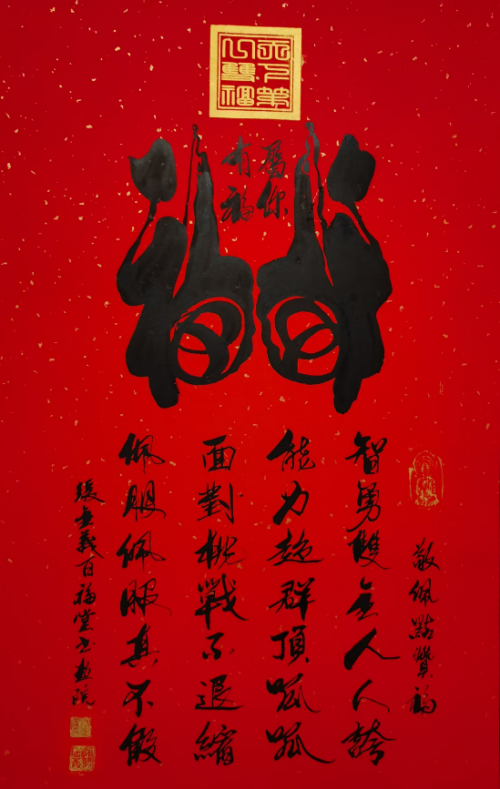 爲你
有福
敬佩點贊福
智勇雙全人人誇
能力超群頂呱呱
面對挑戰不退縮
佩服佩服真不假
張義百福堂書畫院